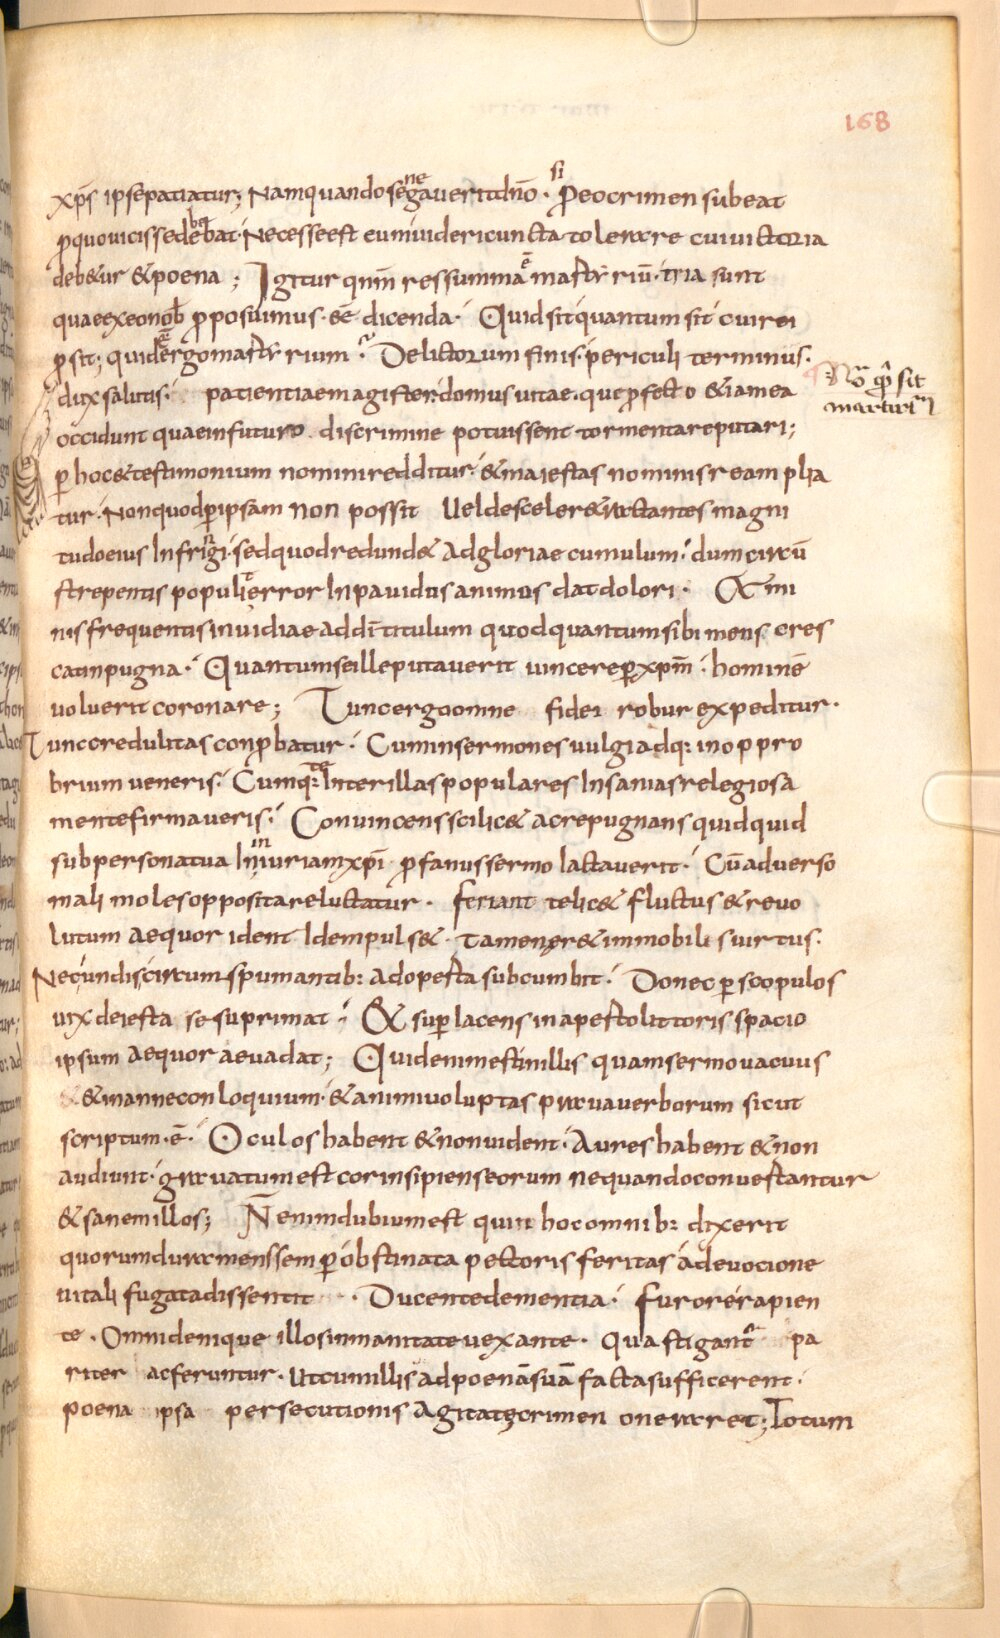 168
xp̄s ipse patiatur; Namquando se negaverit dn̄o · si ꝓ eo crimen subeat
ꝓ quo vicisse debebat · Necesse est eum videri cuncta tolerare cui victoria
deb&ur & poena ; Igitur qm̄ res summa ē martyriū · tria sunt
quae ex eo nob̄ ꝓposuimus · eē dicenda · Quid sit quantum sit cui rei
ꝓsit; quid ē ergo martyrium · Delictorum finis · periculi terminus ·
dux salutis · patientiae magister · domus vitae · que ꝓfecto & iam ea
Nō qđ sit
martiriū
occidunt quae in futuro discrimine potuissent tormenta reputari;
ꝑ hoc & testimonium nomini redditur · & maiestas nominis ream plia
tur · Non quod ꝑ ipsam non possit Uel de scelere & ractantes magni
tudo eius Infringi · sed quod redund& ad gloriae cumulum · dum circū
strepentis populi error Inpavidus animus dat dolori · & mi
nis frequentis invidiae addit̄ titulum quod quantum sibi mens cres
cat in pugna · Quantum se ille putaverit vincere ꝑ xpm̄ · hominē
voluerit coronare; Tunc ergo omne fidei robur expeditur ·
Tunc credulitas conꝓbatur · Cum in sermones vulgi adq: in oppro
brium veneris · Cumq: te Inter illas populares Insanias relegiosa
mente firmaveris · Convincens scilic& ac repugnans quidquid
sub persona tua In iniuriam xp̄i ꝓfanus sermo lactaverit · Cū adverso
mali moles opposita reluctatur · feriant telic& fluctus & revo
lutum aequor ident Idem puls& · tamen er& immobilis virtus ·
Nec undis circumspumantib: adoperta subcumbit · Donec ꝑ scopulos
vix deiefta se suprimat · & suꝑ lacens in aperto littoris spacio
ipsum aequor aevadat; Quid enim est in illis quam sermo vacuus
& & inanne conloquium · & animi voluptas prava verborum sicut
scriptum · ē · Oculos habent & non vident · Aures habent & non
audiunt · gravatum est cor insipiens eorum nequando convertantur
& sanem illos; Nen̄ indubium est quin hoc omnib: dixerit
quorum dura mens sem ꝑ obstinata pectoris feritas a devocione
vitali fugata dissentit · Ducente dementia · furore rapien
te · Omni denique illos inmanitate vexante · qua stigant᷑ pa
riter ac feruntur · ut cum illis ad poenā suā facta sufficerent ·
poena ipsa persecutionis agitatę crimen oneraret; Totum